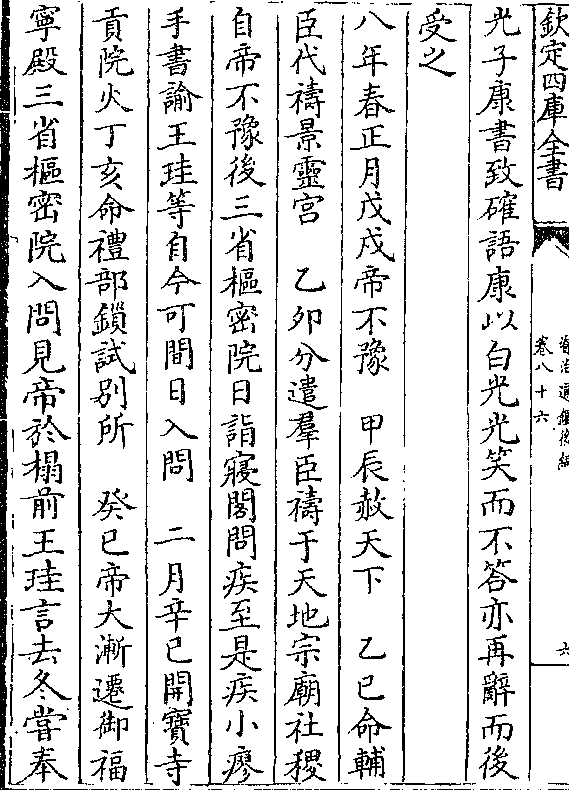 欽定四庫全書
資治通鑑後編
卷八十六
六
光子康書致確語康以白光光笑而不答亦再辭而後
受之
八年春正月戊戌帝不豫　甲辰赦天下　乙巳命輔
臣代禱景靈宫　乙卯分遣羣臣禱于天地宗廟社稷
自帝不豫後三省樞密院日詣寢閣問疾至是疾小瘳
手書諭王珪等自今可間日入問　二月辛巳開寶寺
貢院火丁亥命禮部鎖試别所　癸巳帝大漸遷御福
寧殿三省樞密院入問見帝於榻前王珪言去冬嘗奉